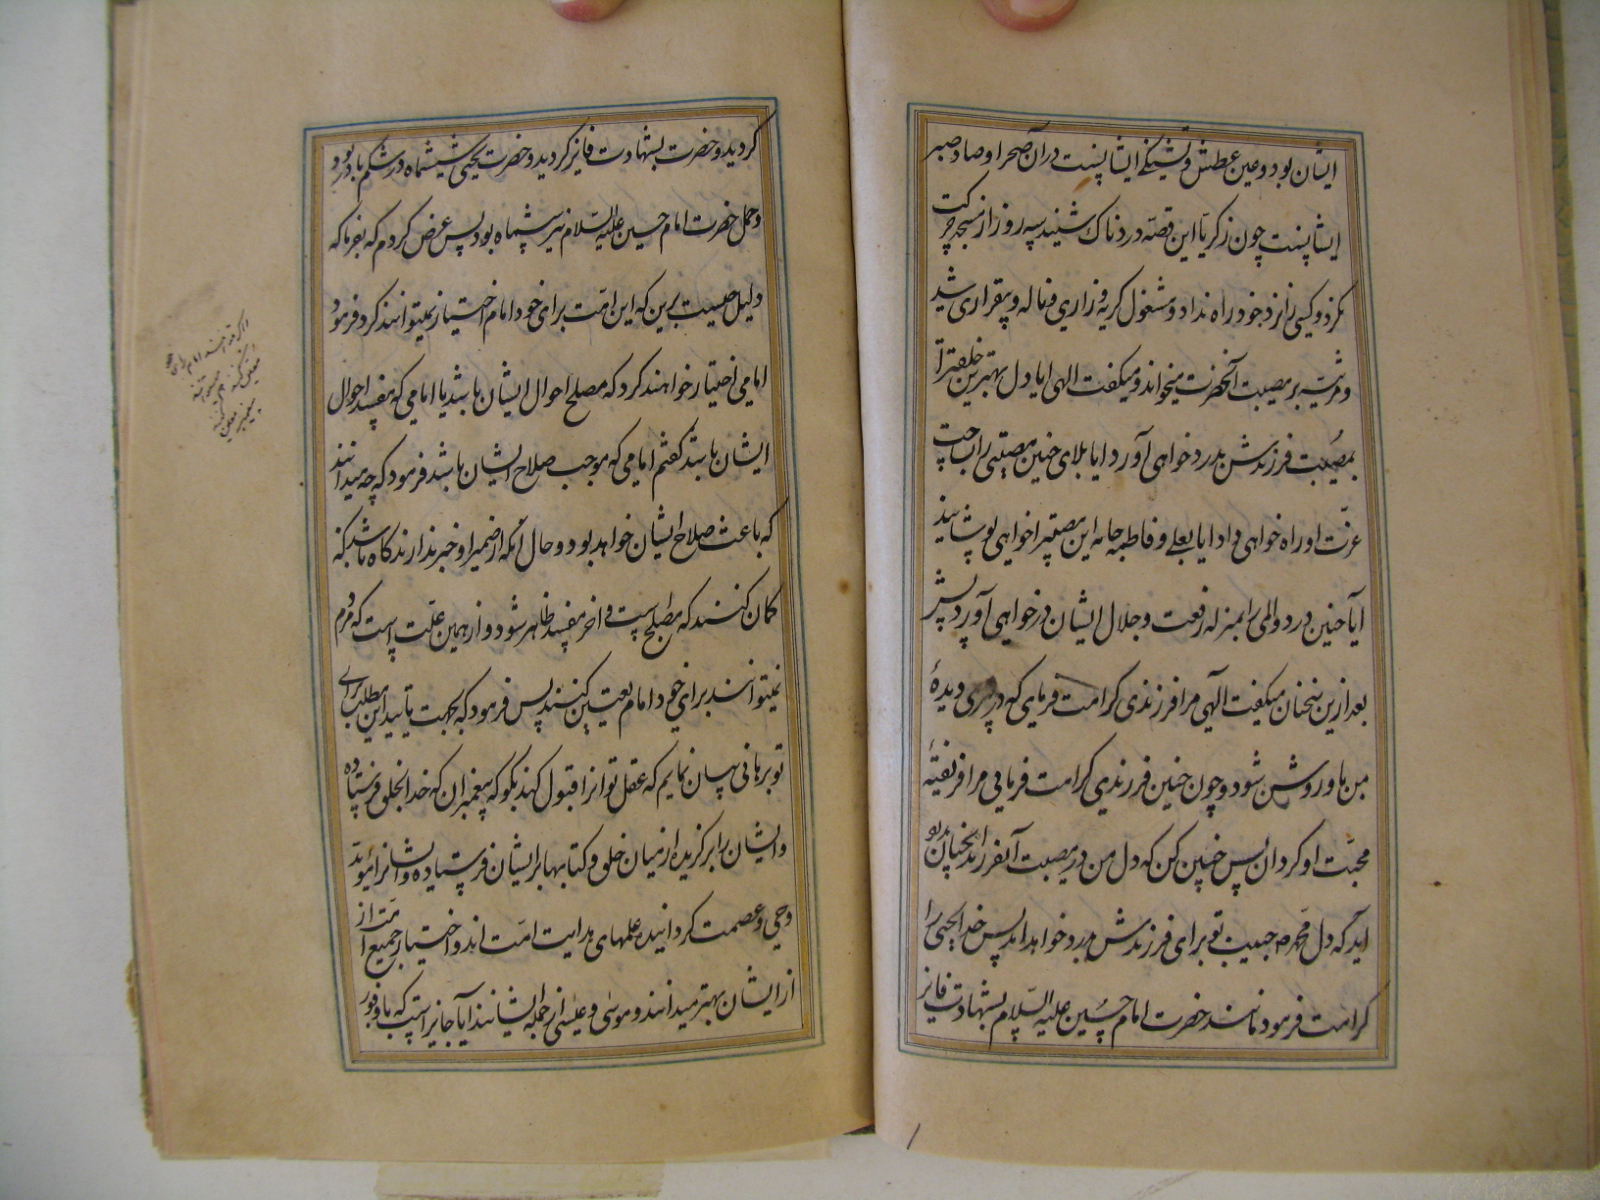 ایشان بود و عین عطش و تشنگی ایشانست دران صحرا و صاد صبر
ایشانست چون زکریا این قصه دردناک شنید سه روز از مسجد حرکت
نکرد و کسی را نزد خود راه نداد و مشغول کریه و زاری و ناله و بیقراری شد
و مرثیه بر مصیبت آنحضرت میخواند و میکفت الهی ایا دل بهترین خلقترا
بمصیبت فرزندش بدرد خواهی آورد ایا بلای چنین مصیبتی را بساحت
عزت او راه خواهی داد ایا بعلی و فاطمه جامه این مصیبترا خواهی پوشانید
آیا چنین درد و المی را بمنزله رفعت و جلال ایشان در خواهی آورد پس
بعد ازین سخنان میکفت الهی مرا فرزندی کرامت فرمای که در پیری دیدهٔ
من باو روشن شود و چون چنین فرزندی کرامت فرمایی مرا فریفتهٔ
محبت او کردان پس چنین کن که دل من در مصیبت آنفرزند انچنان بدرد
اید که دل محمد صه حبیب تو برای فرزندش بدرد خواهد امد پس خدا یحیی را
کرامت فرمود مانند حضرت امام حسین علیه السلام بشهادت فایز
کردید و حضرت بشهادت فایز کردید و حضرت یحیی ششماه در شکم مادر بود
و حمل حضرت امام حسین علیه السلام نیز ششماه بود پس عرض کردم که بفرما که
دلیل چیست برین که این امت برای خود امام اختیار نمیتوانند کرد فرمود
امامی اختیار خواهند کرد که مصلح احوال ایشان باشد یا امامی که مفسد احوال
ایشان باشد کفتم امامی که موجب صلاح ایشان باشد فرمود که چه میدانند
که باعث صلاح ایشان خواهد بود و حال آنکه از ضمیر او خبر ندارند کاه باشد که
کمان کنند که مصلح است و اخر مفسد ظاهر شود و از همین علت است که مردم
نمیتوانند برای خود امام تعیین کنند پس فرمود که بجهت تایید این مطلب برای
تو برهانی بیان نمایم که عقل تو انرا قبول کند بکو که پیغمبران که خدا بخلق فرستاده
و ایشان را برکزیده از میان خلق و کتابها بر ایشان فرستاده و ایشانرا مؤید
وحی و عصمت کردانیده علمهای هدایت امت اند و اختیار جمیع امت از
از ایشان بهتر میدانند و موسی و عیسی از جمله ایشانند آیا جایز است که با وفور